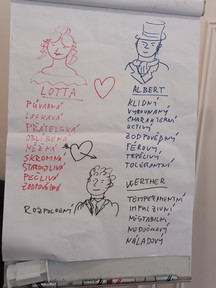 LOTTA
PŮVABNÁ
LASKAVÁ
PŘÁTELSKÁ
OBLÍBENÁ
NĚŽNÁ
SKROMNÁ
STAROSTLIVÁ
PEČLIVÁ
ZODPOVĚDNÁ
ROZPOLCENÁ
ALBERT
KLIDNÝ
VYROVNANÝ
CHARAKTERNÍ
UCTIVÝ
ZODPOVĚDNÝ
FÉROVÝ
TRPĚLIVÝ
TOLERANTNÍ
WERTHER
TEMPERAMENTNÍ
IMPULZIVNÍ
NESTABILNÍ
NEDOČKAVÝ
NÁLADOVÝ